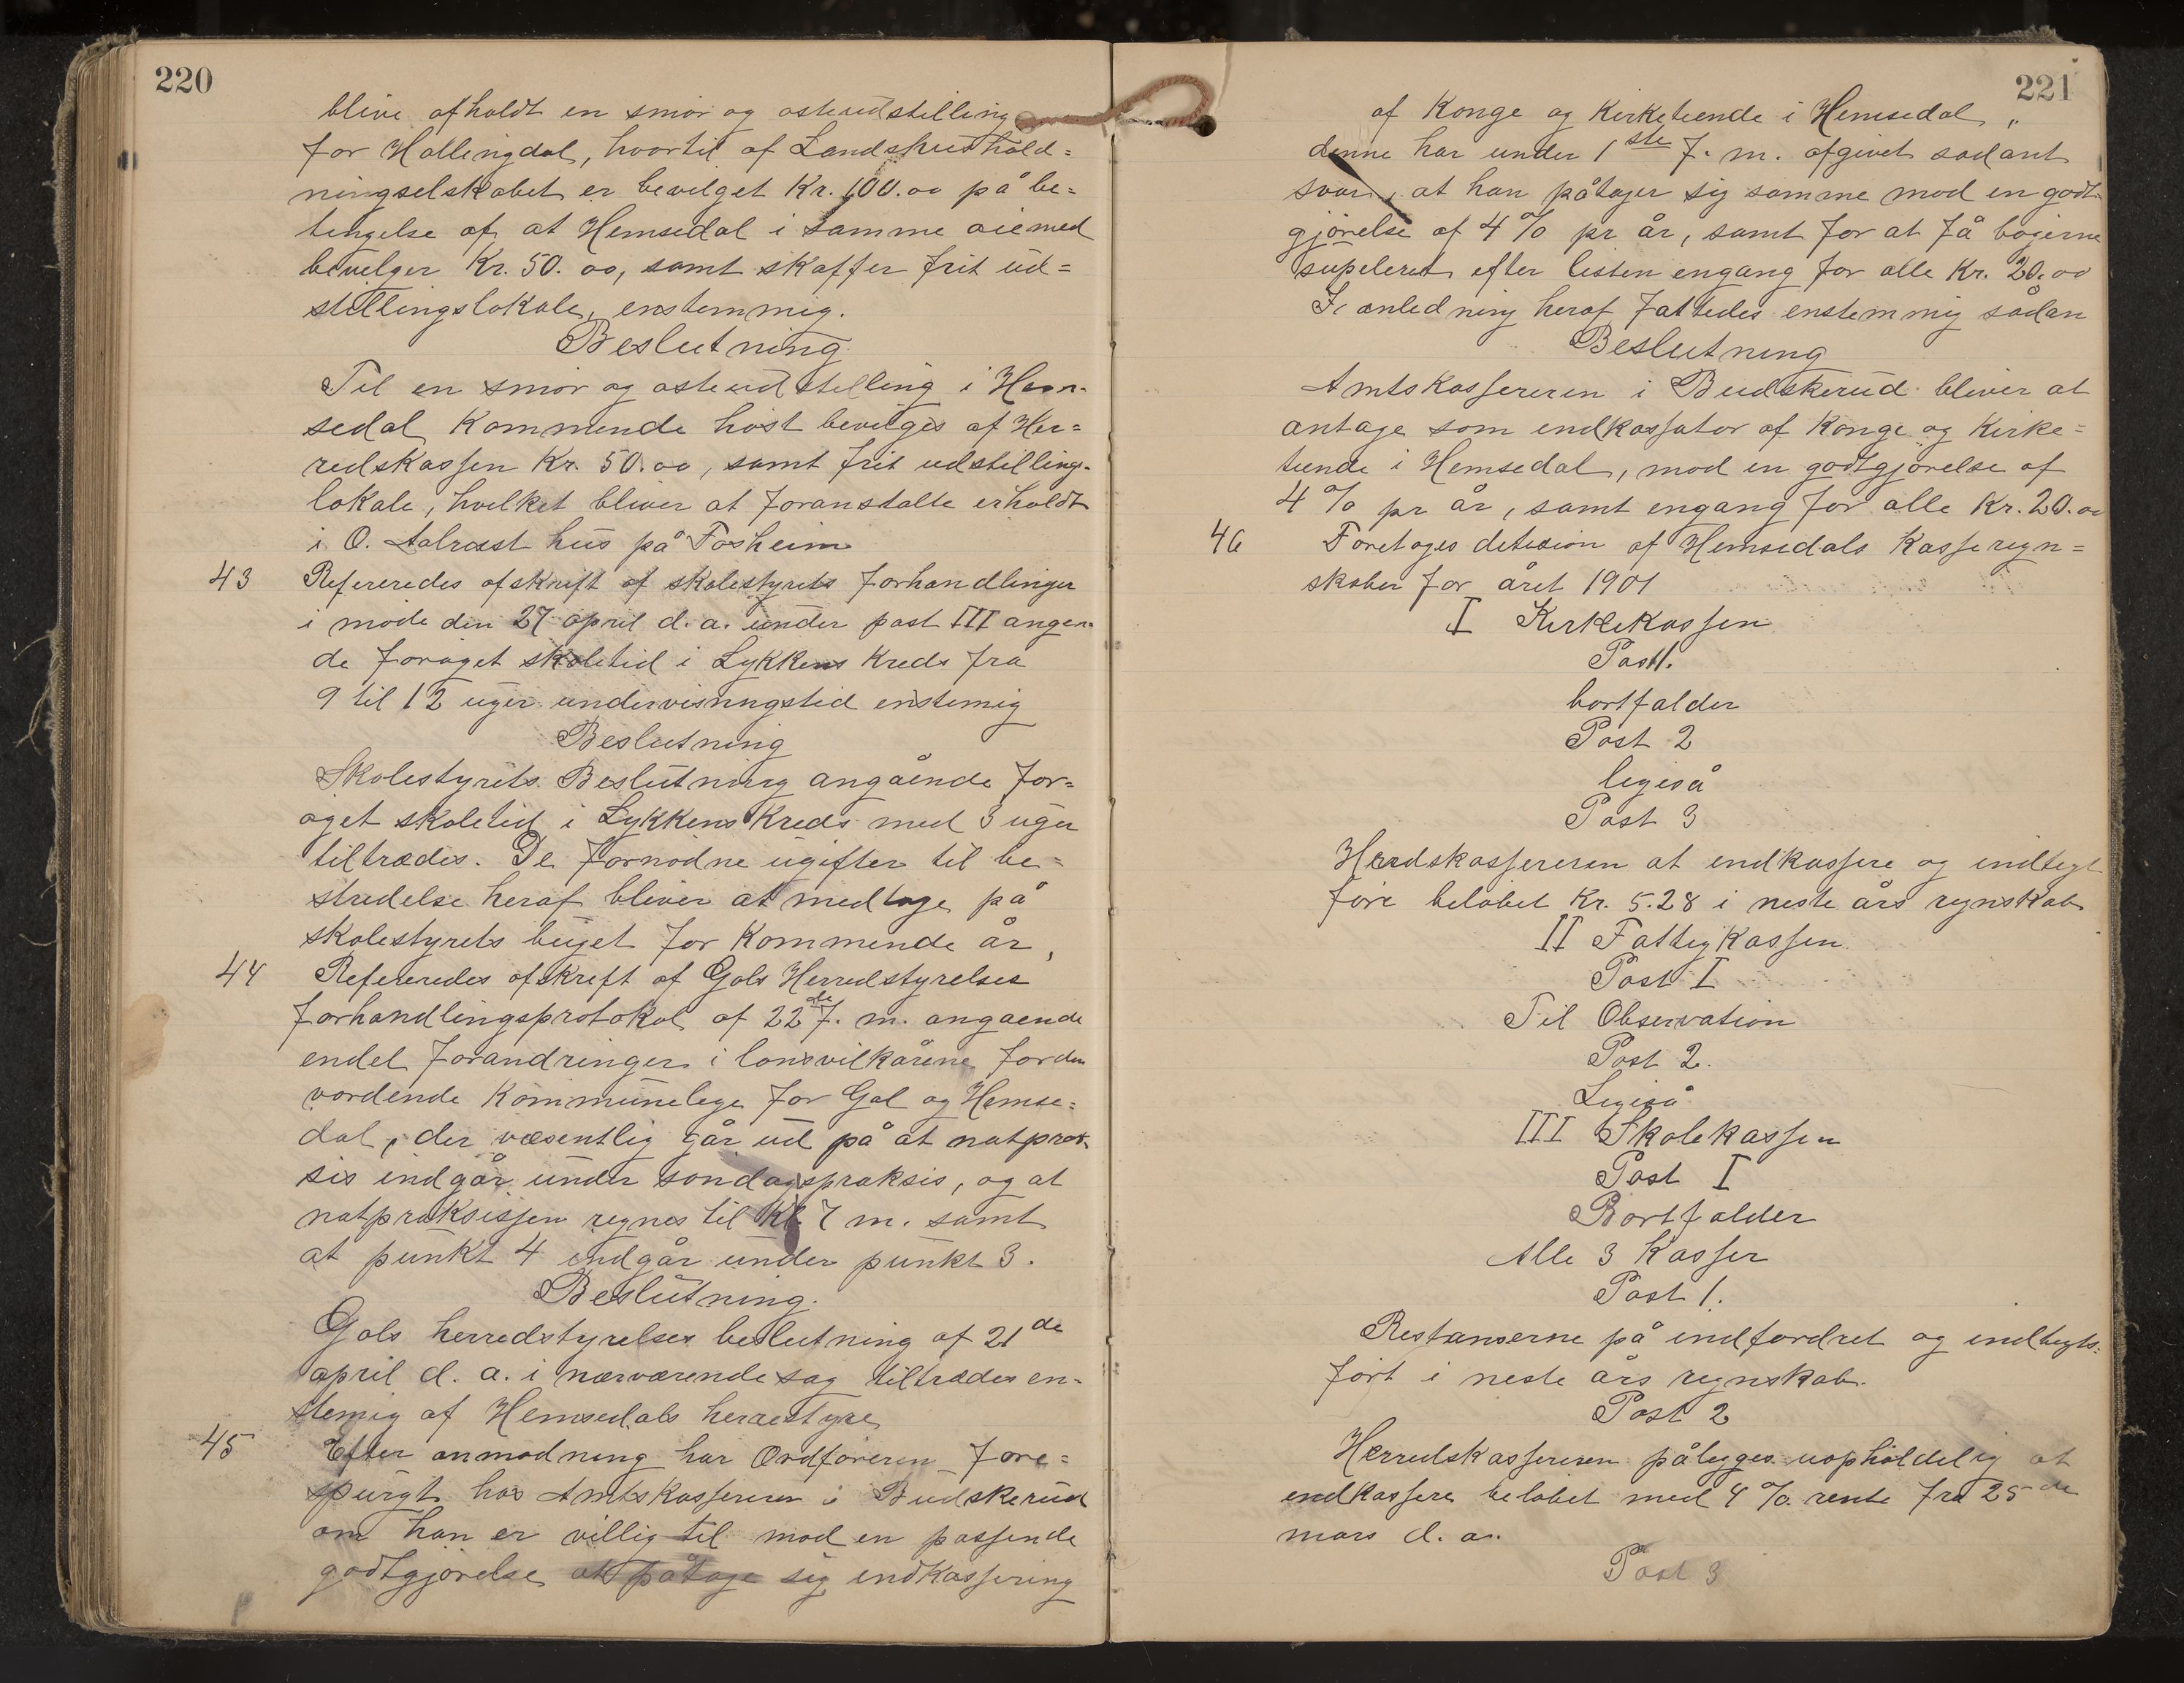 220
blive afholdt en smør og osteudstilling
for Hallingdal, hvortil af Landshushold=
ningselskabet er bevilget Kr. 100.00 på be=
tingelse af at Hemsedal i samme øiemed
bevilger Kr. 50.00, samt skaffer frit ud=
stillingslokale, enstemmig.
Beslutning
Til en smør og osteudstilling i Hem-
sedal kommende høst bevilges af Her=
redskassen Kr. 50.00, samt frit udstillings-
lokale, hvilket bliver at foranstalte erholdt
i O. hus på Fosheim
43 Refereredes afskrift af skolestyrets forhandlinger
i møde den 27 april d. a. under post III angåen-
de forøget skoletid i Lykkens Kreds fra
9 til 12 uger undervisningstid enstemig
Beslutning
Skolestyrets Beslutning angående for=
øget skoletid i Lykkens Kreds med 3 uger
tiltrædes. De fornødne ugifter til be=
stridelse heraf bliver at medtage på
skolestyrets buget for kommende år,
44 Refereredes afskrift af Gols Herredstyrelses
forhandlingsprotokol af 22de f. m. angaende
endel forandringer i lønsvilkårene for den
vordende Kommunelege for Gol og Hemse=
dal, der væsentlig går ud på at natprak-
sis indgår under søndagspraksis, og at
natpraksissen regnes til Kl. 7 m. samt
at punkt 4 indgår under punkt 3.
Beslutning.
Gols herredstyrelses beslutning af 21de
april d. a. i nærværende sag tiltrædes en-
stemig af Hemsedals herrestyre
45 Efter anmodning har Ordføreren fore=
spurgt hos Amtskassereren i Budskerud
om han er villig til mod en passende
godtgjørelse at påtage sig indkassering
221
af Konge og Kirketiende i Hemsedal „
denne har under 1ste f. m. afgivet sådant
svar, at han påtager sig samme mod en godt-
gjørelse af 4 % pr år, samt for at få bøgerne
supeleret efter listen engang for alle Kr. 20.00
I anledning heraf fattedes enstemmig sådan
Beslutning
Amtskassereren i Budskerud bliver at
antage som indkassator af Konge og Kirke=
tiende i Hemsedal, mod en godtgjørelse af
4 % pr år, samt engang for alle Kr. 20.00
46 Foretoges detision af Hemsedals Kasseregn=
skaber for året 1901
I Kirkekassen
Post 1.
bortfalder
Post 2
ligeså
Post 3
Herredskassereren at indkassere og indtegt
føre beløbet Kr. 5.28 i neste års regnskab
II Fattigkassen
Post I
Til Observation
Post 2.
Ligeså
III Skolekassen
Post I
Bortfalder
Alle 3 Kasser
Post 1.
Restanserne på indfordret og indtegts-
ført i neste års regnskab.
Post 2
Herredskassereren pålegges uopholdelig at
indkassere beløbet med 4 % rente fra 25de
mars d. a.
Post 3